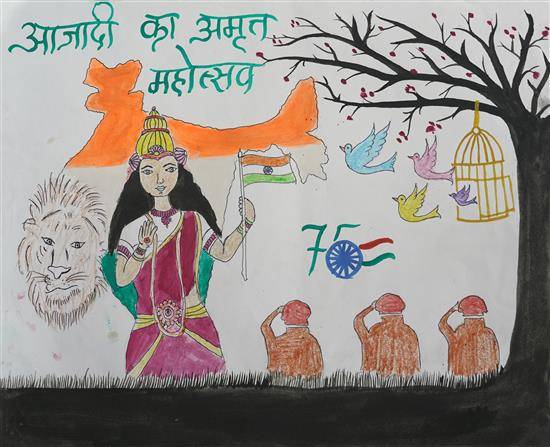 आज़ादी का अमृत
महोत्सव
75